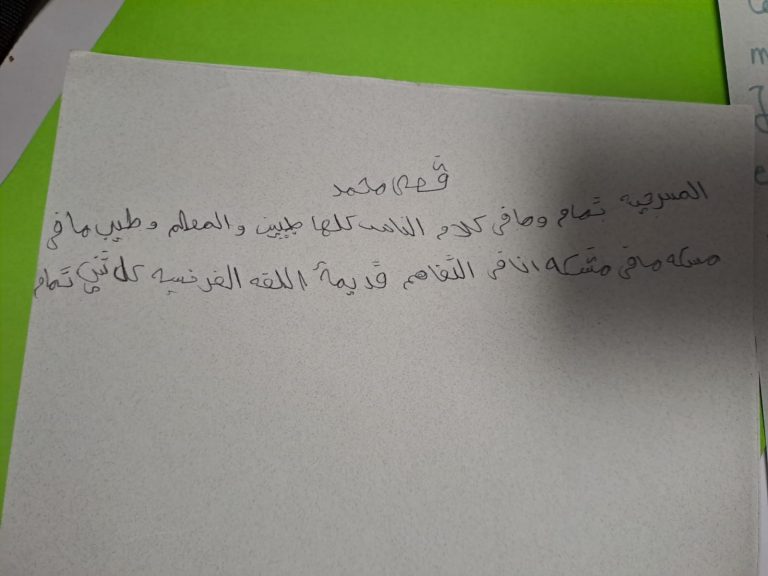 قصة محمد
المسرحية تمام وما في كلام الناس كلها طيبين والمعلم وطيب ما في
مسكله ما في مشكله انا في التفاهم قديمة اللقه الفرنسيه كل شي تمام